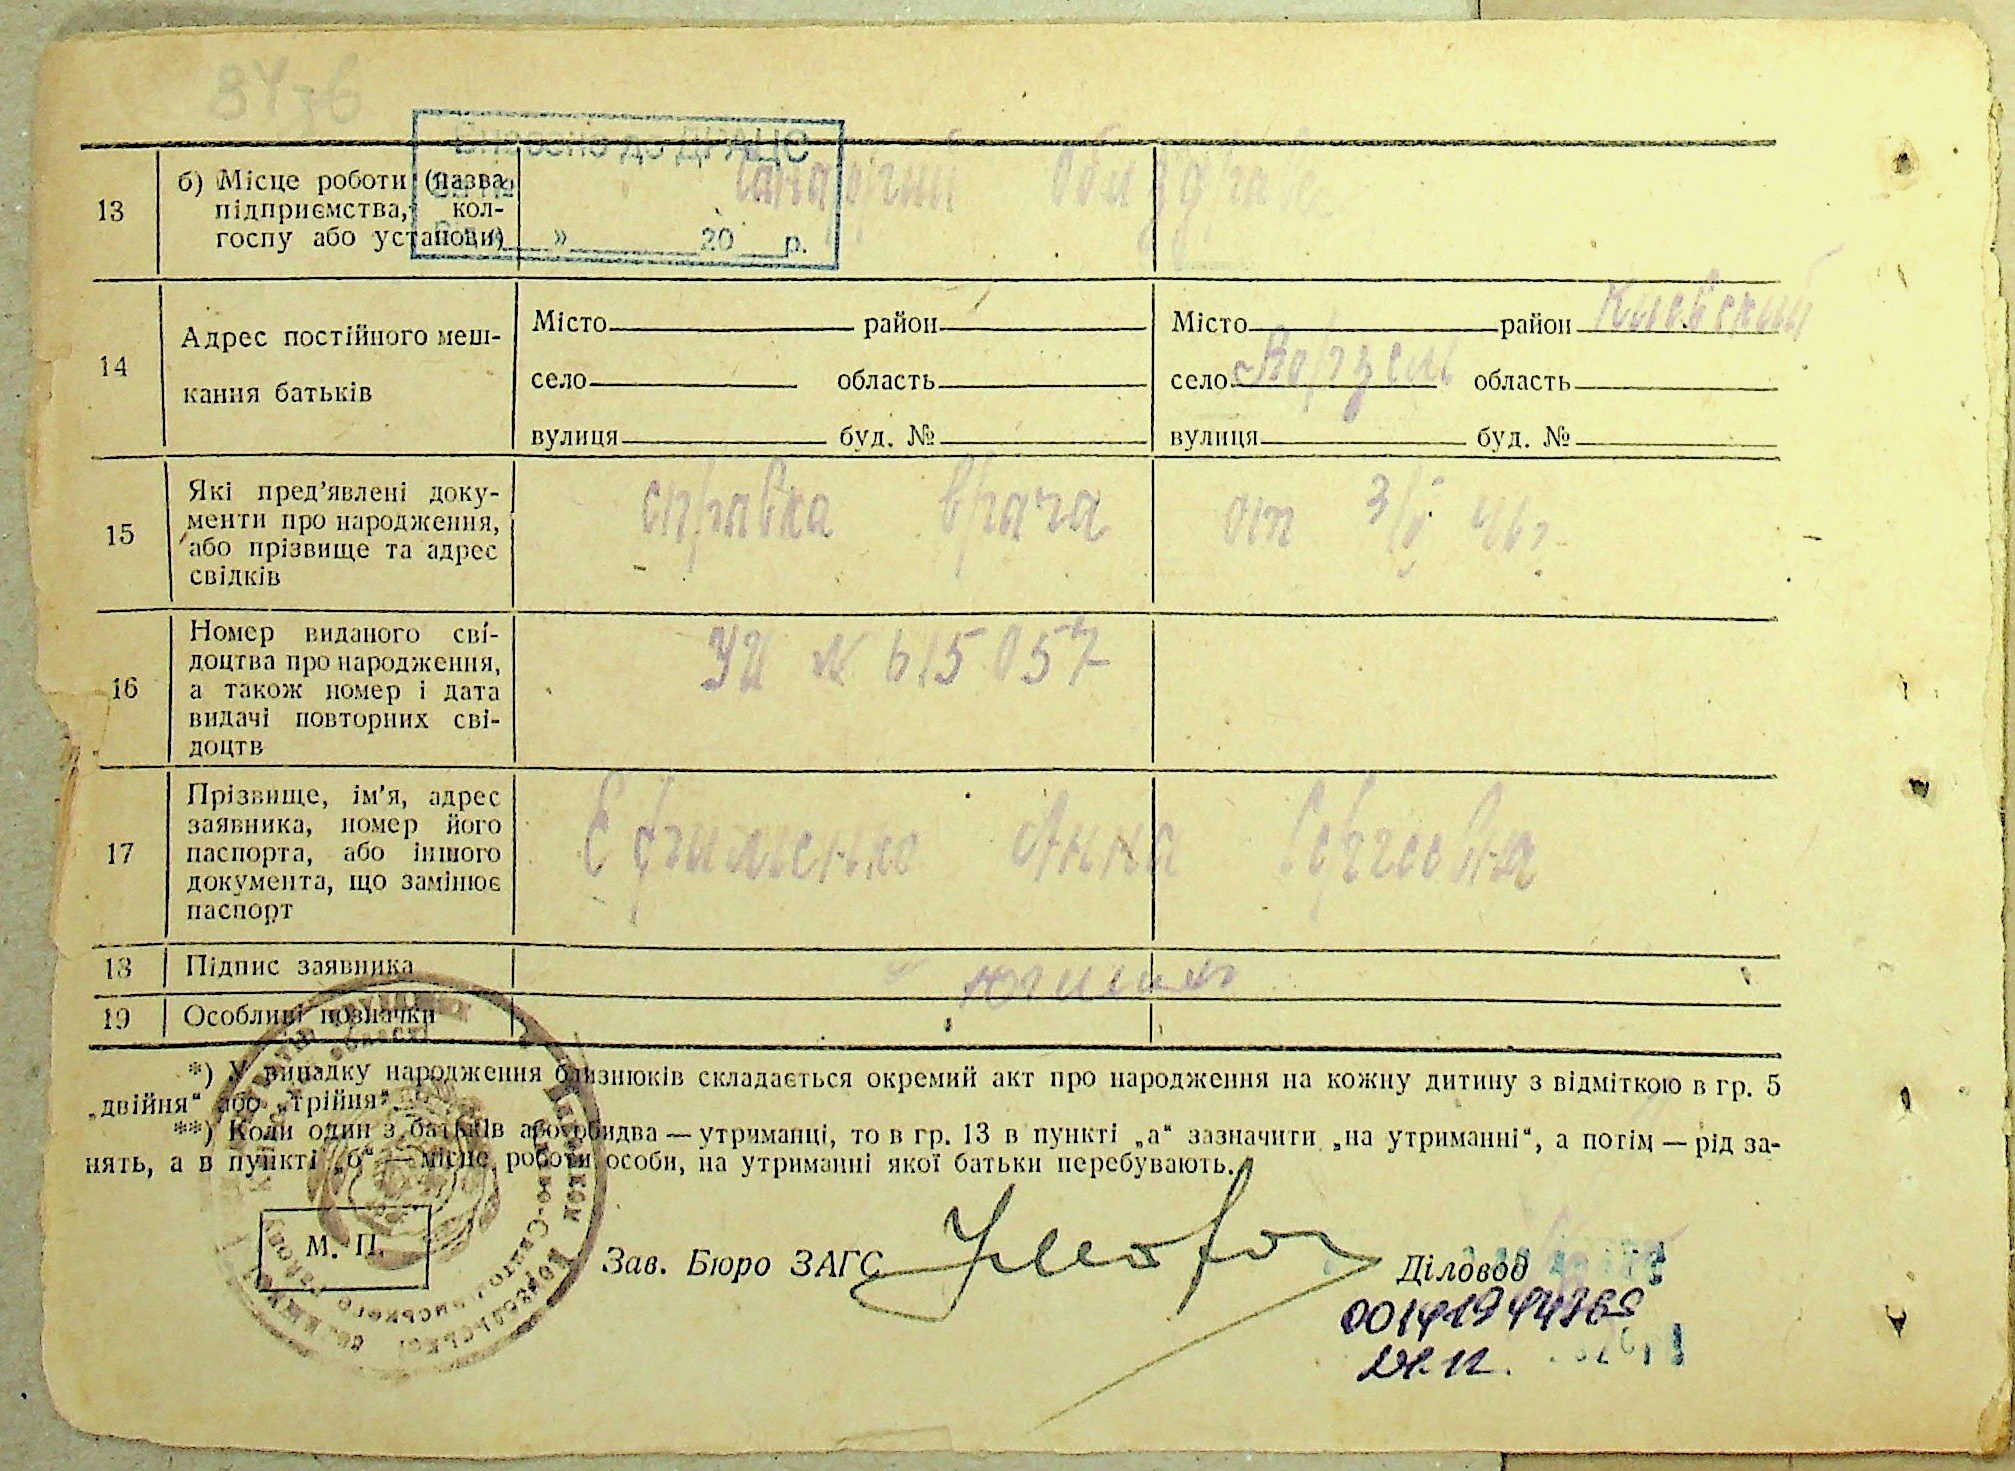 13
б) Місце роботи (назва
підприємства, кол-
госпу або установи)
» 20 р.
14
Адрес постійного меш-
кання батьків
Місто район
село область
вулиця буд. №
Місто район Киевский
село Ворзель область
вулиця буд. №
15
Які пред'явлені доку-
менти про народження,
або прізвище та адрес
свідків
справка врача от 3/V 46г.
16
Номер виданого сві-
доцтва про народження,
а також номер і дата
видачі повторних сві-
доцтв
№ 615057
17
Прізвище, ім'я, адрес
заявника, номер його
паспорта, або іншого
документа, що замінює
паспорт
Ефименко Анна Сергеевна
18
Підпис заявника
19
Особливі позначки
*) У випадку народження близнюків складається окремий акт про народження на кожну дитину з відміткою в гр. 5
„двійня“ або „трійня“.
**) Коли один з батьків або обидва — утриманці, то в гр. 13 в пункті „а“ зазначити „на утриманні“, а потім — рід за-
нять, а в пункті „б“ — місце роботи особи, на утриманні якої батьки перебувають.
М. П.
Зав. Бюро ЗАГС
Діловод